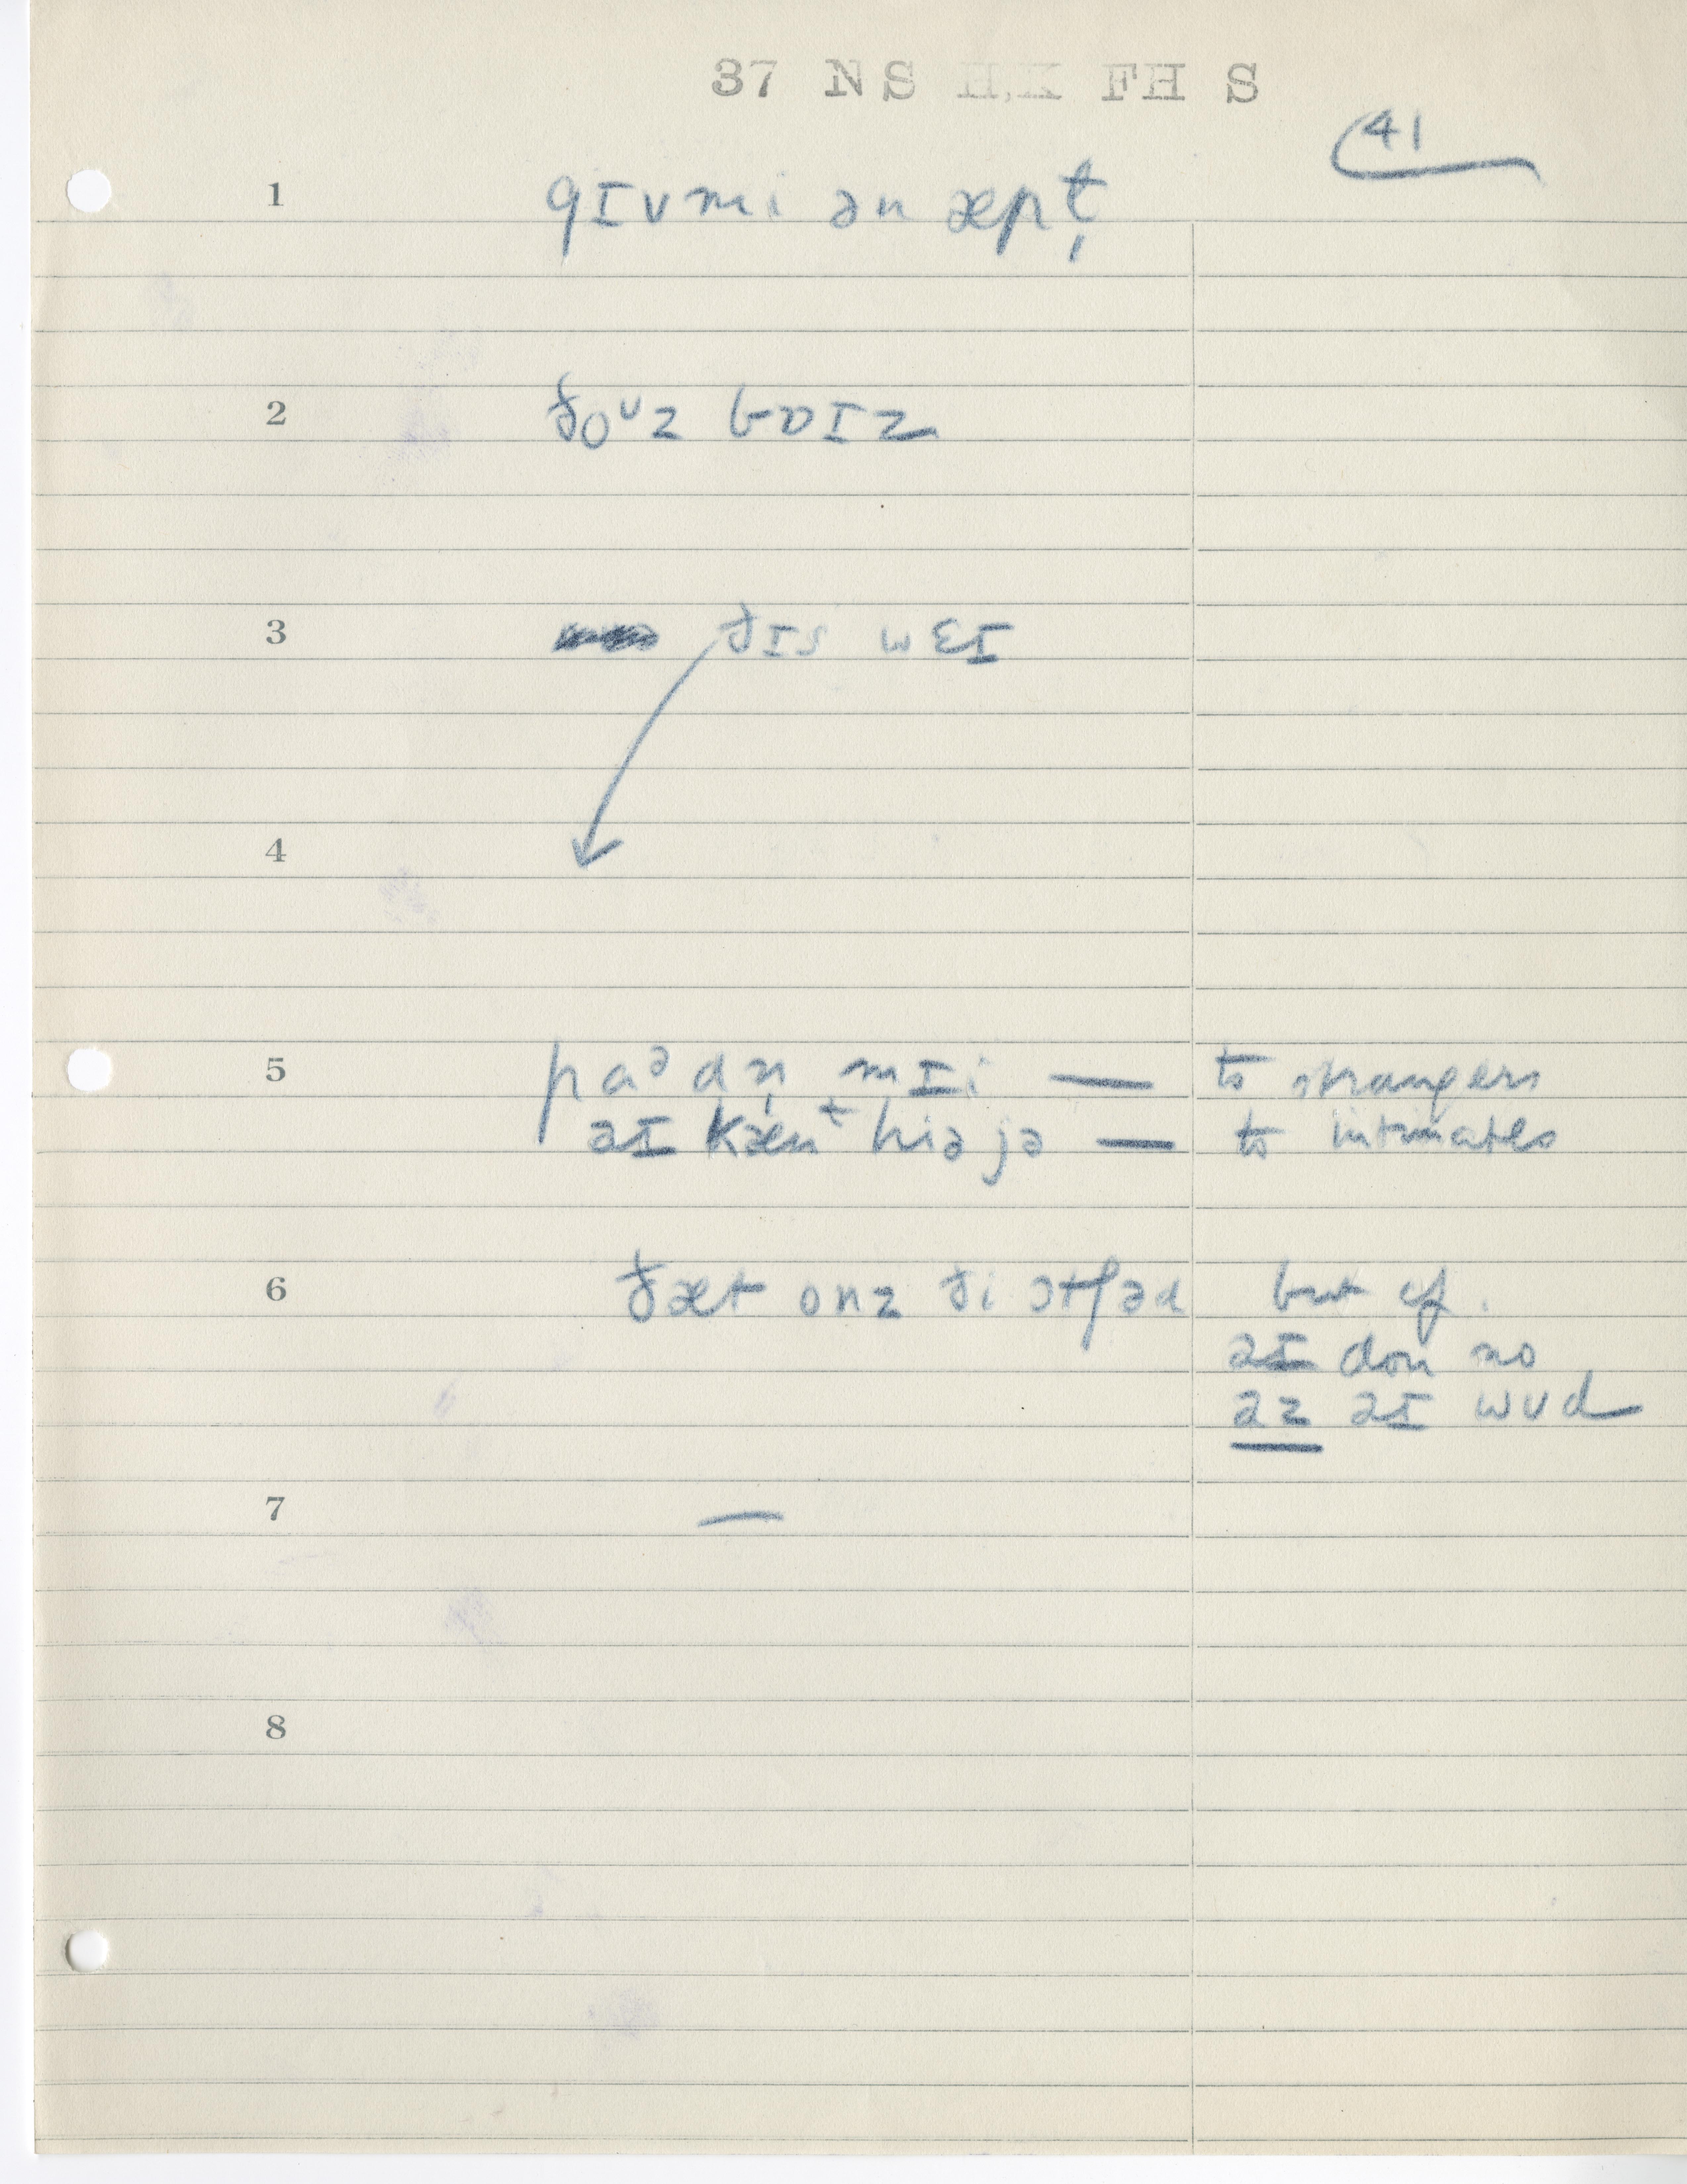 37 NS H,K FH S
41
1 gɪvmi ən æpt̩
2 ðoᶷz bɒɪz
3 ðɪs wɛɪ
4
5 paᵊdn̩ mɪi — to strangers
əɪ kænᵗ hiə jə — to intimates
6 ðæt onz ði ɔtʃəd but cf.
əɪ don no
əz əɪ wud
7 —
8